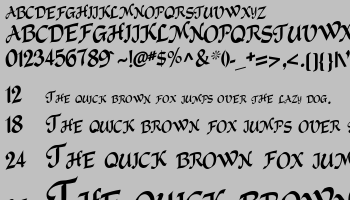 ABCDEFGHIJKLMNOPQRSTUVWXYZ
ABCDEFGHIJKLMNOPQRSTUVWX
0123456789 ~!@#$%^&*()-_+=>,<.[]{}|\
12 The quick brown fox jumps over the lazy dog.
18 The quick brown fox jumps over
24 The quick brown fox
The quick brown